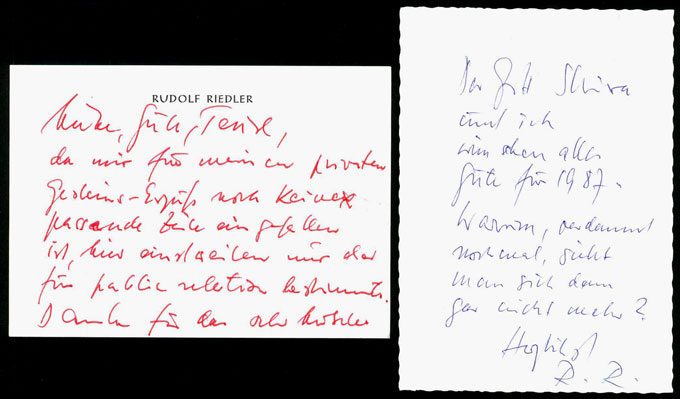 RUDOLF RIEDLER
da mir für meinen privaten
noch keine
passende eingefallen
ist, hier einstweilen nur der
für public relation bestimmte.
Danke für das
Der Gott Schiva
und ich
wünschen alles
Gute für 1987.
Warum, verdammt
nochmal, sieht
man sich denn
gar nicht mehr?
Herzlichst
R. R.